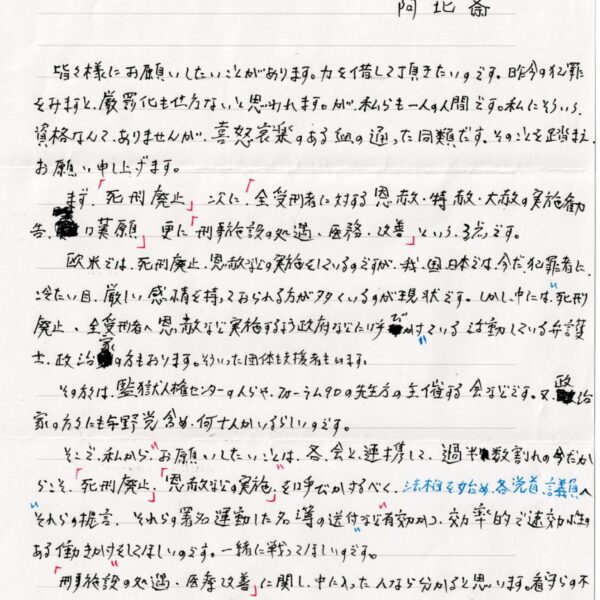 阿北斎
皆々様にお願いしたいことがあります。力を借して頂きたいのです。昨今の犯罪
をみますと、厳罰化も仕方ないと思われます。が、私らも一人の人間です。私にそういう、
資格なんて、ありませんが、喜怒哀楽のある血の通った同類だす。そのことを踏まえ、
お願い申し上げます。
まず、「死刑廃止」次に、「全受刑者に対する恩赦・特赦・大赦の実施勧
告、嘆願」更に「刑事施設の処遇・医務・改善」という、3点です。
欧米では、死刑廃止、恩赦などの実施をしているのですが、我、国日本では、今だ犯罪者に、
冷たい目、厳しい感情を持っておられる方が多くいるのが現状です。しかし、中には、"死刑
廃止、全受刑者へ恩赦など実施するよう政府などに呼びかけ"ている活動している弁護
士、政治家の方もおります。そういった団体も支援者もいます。
その方々は、監獄人権センターの人らや、フォーラム90の先生方の主催する会などです。又、政治
家の方々にも与野党含め、何十人かいるらしいのです。
そこで、私から、"お願いしたいことは"、各、会と、連携して、過半数割れの今だか
らこそ、「死刑廃止」「恩赦などの実施」を呼びかけるべく、法相を始め、各党首、議員へ
"それらの提言、それらの署名運動した名簿の送付など"有効かつ、効率的で速効性の
ある働きかけをしてほしいのです。一緒に戦ってほしいのです。
「刑事施設の処遇・医療改善」に関し、中に入った人なら分かると思います。看守らの不